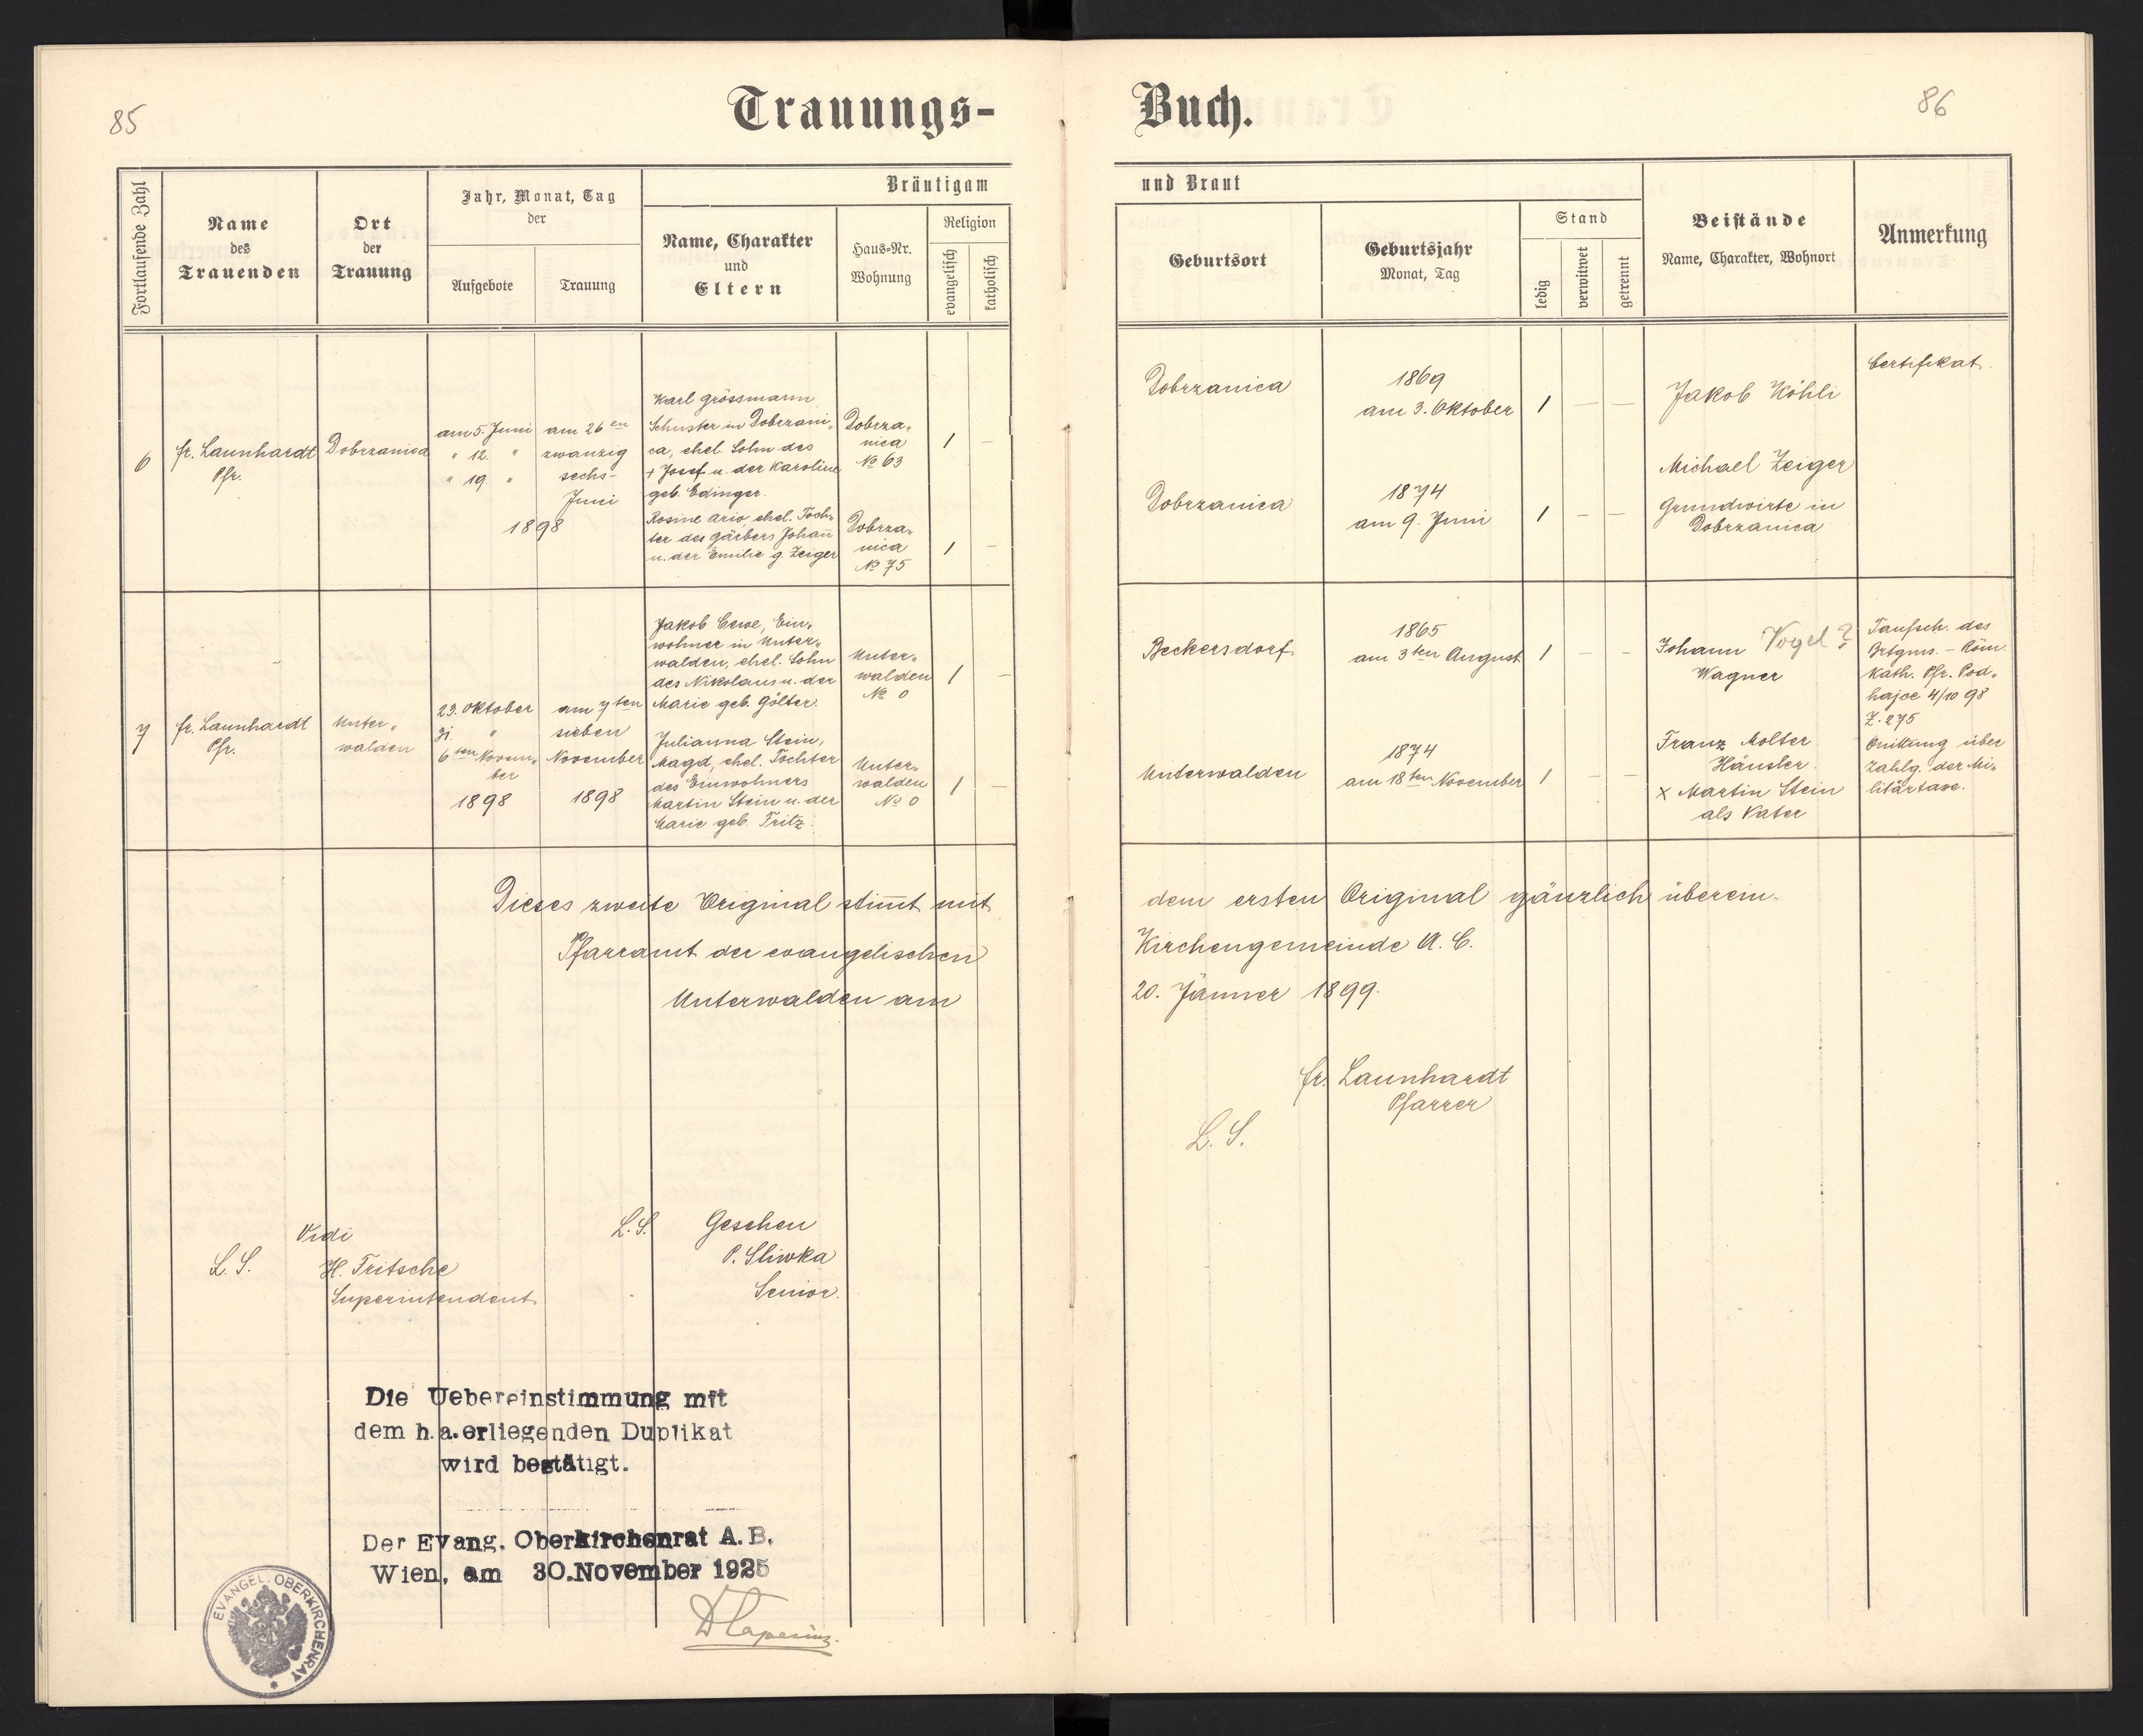 85
Trauungs-
Buch.
86
Fortlaufende Zahl
Name
des
Trauenden
Ort
der
Trauung
Jahr, Monat, Tag
der
Aufgebote
Trauung
Bräutigam
und Braut
Name, Charakter
und
Eltern
Haus-Nr.
Wohnung
Religion
evangelisch
katholisch
Geburtsort
Geburtsjahr
Monat, Tag
Stand
ledig
verwitwet
getrennt
Beistände
Name, Charakter, Wohnort
Anmerkung
6
fr. Launhardt
Pfr.
Dobrzanica
am 5. Juni
" 12. "
" 19. "
am 26en
zwanzig
sechs-
Juni
1898
Karl Grössmann
Schuster in Dobrzani-
ca, ehel. Sohn des
+ Josef u. der Karoline
geb. Edinger.
Rosine Ario, ehel. Toch-
ter des Gärbers Johann
u. der Emilie g. Zeiger
Dobrza-
nica
No 63
Dobrza-
nica
No 75
1 –
1 –
Dobrzanica
Dobrzanica
1869
am 3. Oktober
1874
am 9. Juni
1 – –
1 – –
Jakob Köhli
Michael Zeiger
Grundwirte in
Dobrzanica
Certifikat.
7
fr. Launhardt
Pfr.
Unter-
walden
23. Oktober
31. "
6ten Novem-
ber
1898
am 7ten
sieben
November
1898
Jakob Cewe, Ein-
wohner in Unter-
walden, ehel. Sohn
des Nikolaus u. der
Marie geb. Gölter.
Julianna Stein,
Magd, ehel. Tochter
des Einwohners
Martin Stein u. der
Marie geb. Fritz.
Unter-
walden
No 0
Unter-
walden
No 0
1 –
1 –
Beckersdorf
Unterwalden
1865
am 3ten August
1874
am 18ten November
1 – –
1 – –
Johann Vogel ?
Wagner
Franz Molter
Häusler.
x Martin Stein
als Vater
Taufsch. des
Brtgms. – Röm.
kath. Pfr. Pod-
hajce 4/10 98
Z. 275
Quittung über
Zahlg. der Mi-
litärtaxe.
Dieses zweite Original stimt mit dem ersten Original gänzlich überein.
Pfarramt der evangelischen Kirchengemeinde A. C.
Unterwalden am 20. Jänner 1899.
fr. Launhardt
Pfarrer
L. S.
Vidi
L. S. H. Fritsche
Superintendent
L. S. Gesehen
P. Sliwka
Senior.
Die Uebereinstimmung mit
dem h.a.erliegenden Duplikat
wird bestätigt.
Der Evang. Oberkirchenrat A.B.
Wien, am 30.November 1925
EVANGEL. OBERKIRCHENRAT